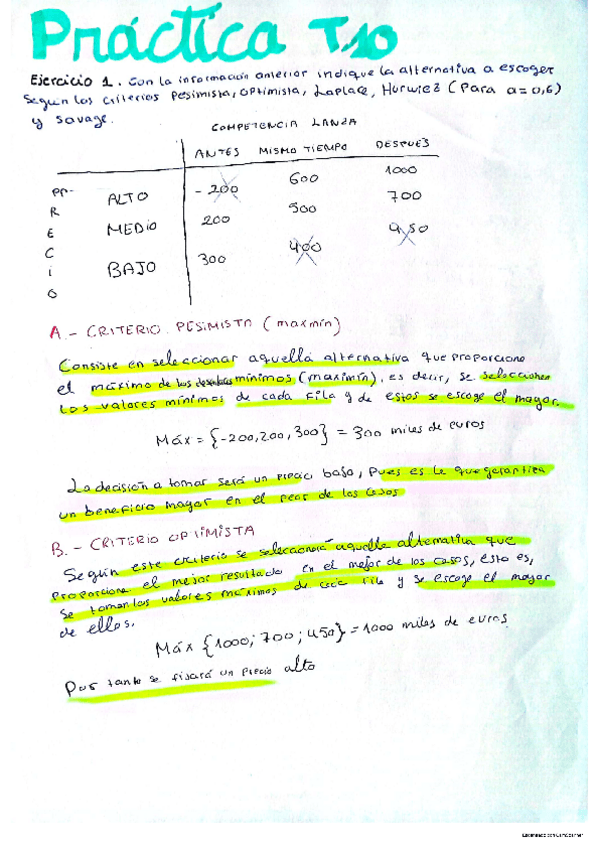 Práctica T.10
Ejercicio 1. Con la información anterior indique la alternativa a escoger
según los criterios Pesimista, Optimista, Laplace, Hurwicz (Para a=0,6)
y Savage.
COMPETENCIA LANZA
ANTES MISMO TIEMPO DESPUÉS
PRECIO
ALTO -200 600 1000
MEDIO 200 500 700
BAJO 300 400 450
A.- CRITERIO PESIMISTA (maxmin)
Consiste en seleccionar aquella alternativa que proporcione
el máximo de los mínimos (maximin), es decir, se seleccionan
los valores mínimos de cada fila y de estos se escoge el mayor.
Máx = {-200, 200, 300} = 300 miles de euros
La decisión a tomar será un precio bajo, pues es la que garantiza
un beneficio mayor en el peor de los casos
B.- CRITERIO OPTIMISTA
Según este criterio se seleccionará aquella alternativa que
proporcione el mejor resultado en el mejor de los casos, esto es,
se toman los valores máximos de cada fila y se escoge el mayor
de ellos.
Máx {1000; 700; 450} = 1000 miles de euros
Por tanto se fijará un precio alto
Escaneado con CamScanner